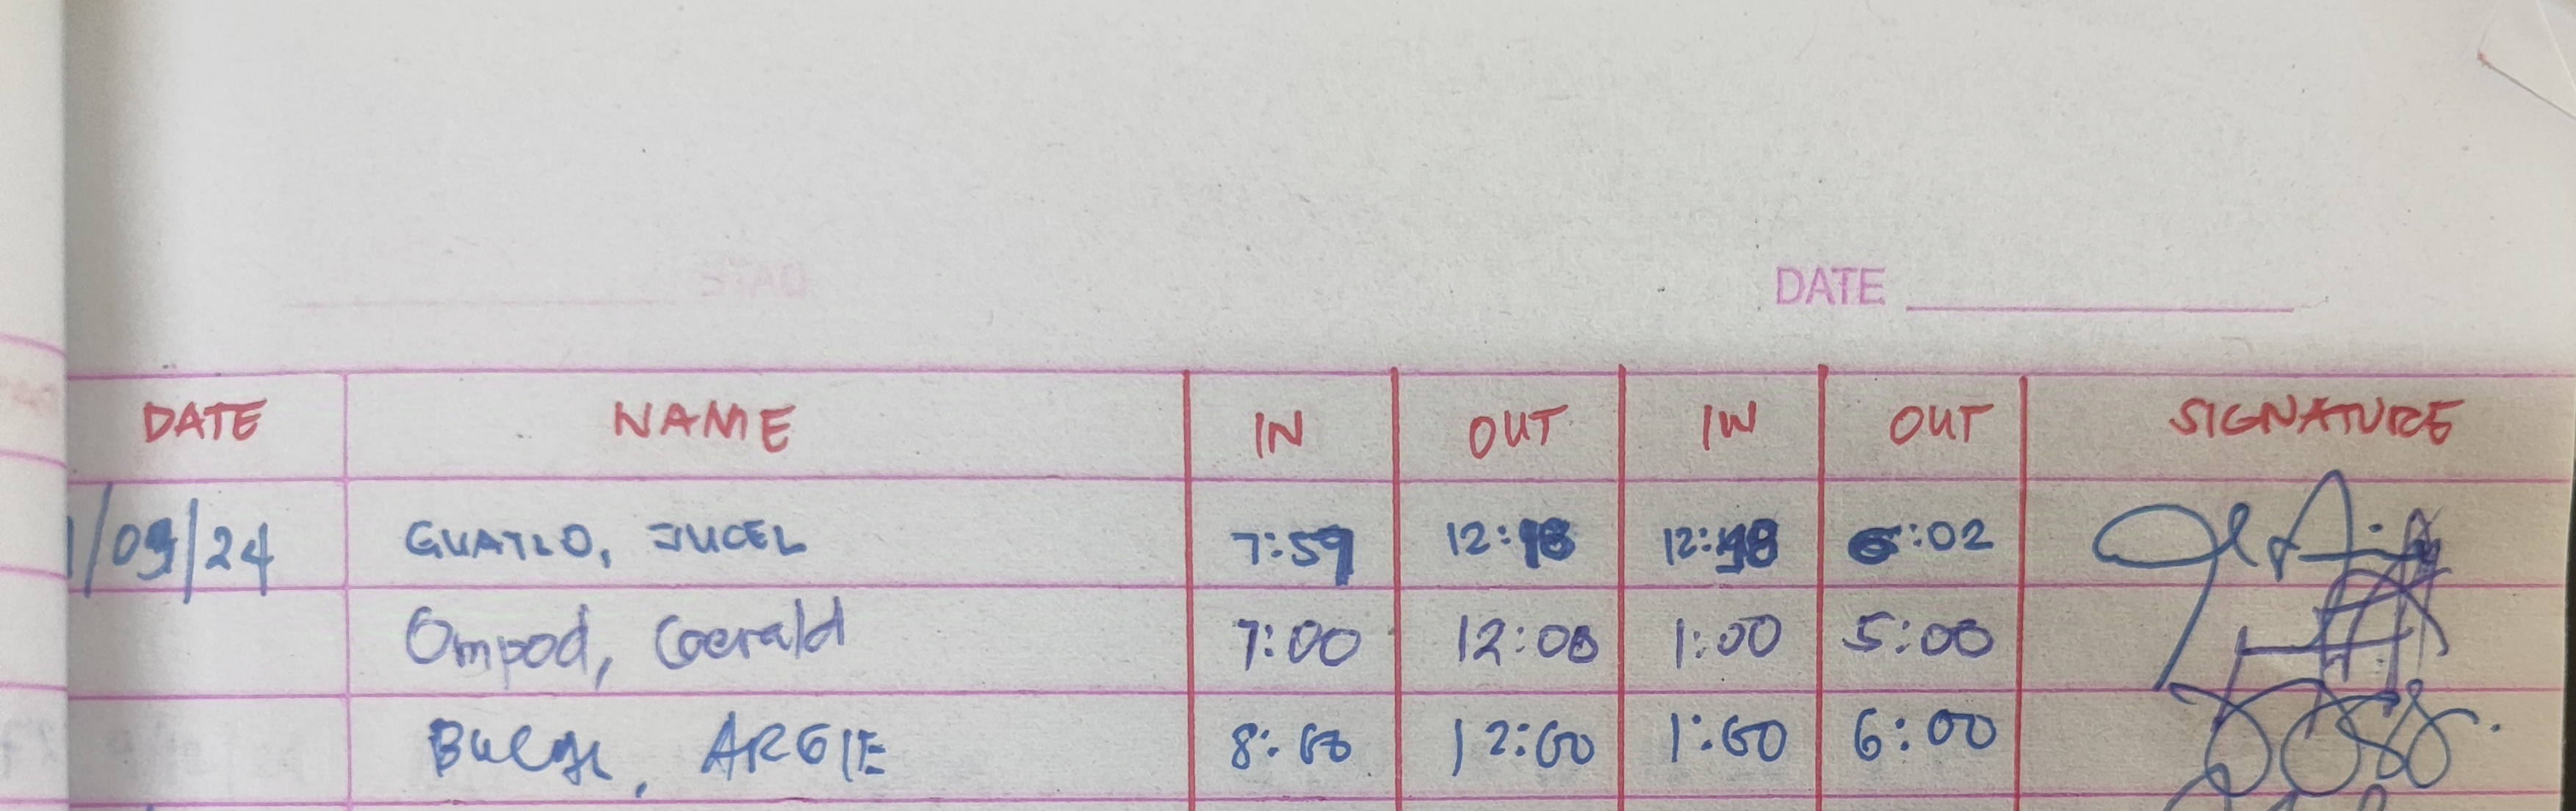 DATE
DATE NAME IN OUT IN OUT SIGNATURE
1/09/24 GUATLO, JUCEL 7:59 12:18 12:48 6:02
Ompod, Gerald 7:00 12:00 1:00 5:00
ARGIE 8:00 12:00 1:00 6:00